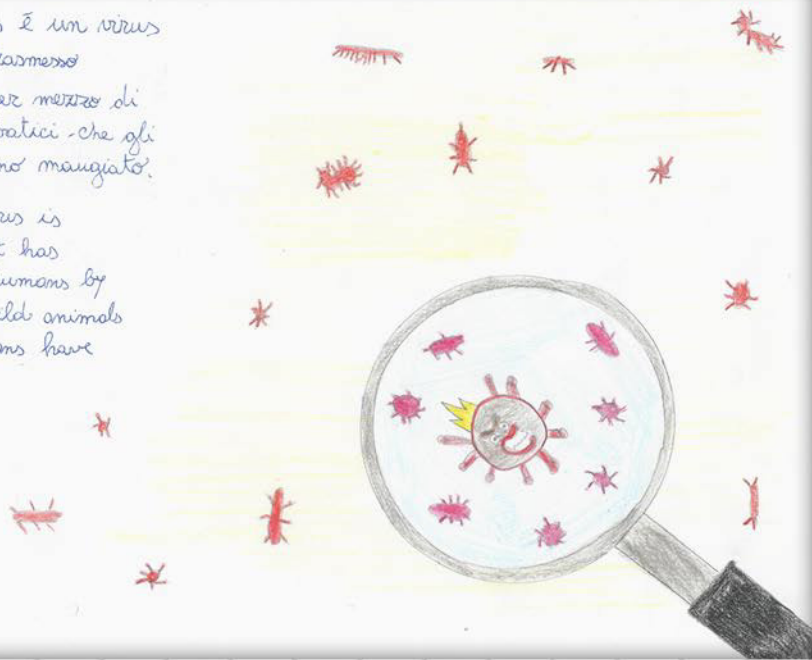 s é un virus
rasmesso
er mezzo di
vatici-che gli
no mangiato.
rus is
t has
umans by
ild animals
ns have